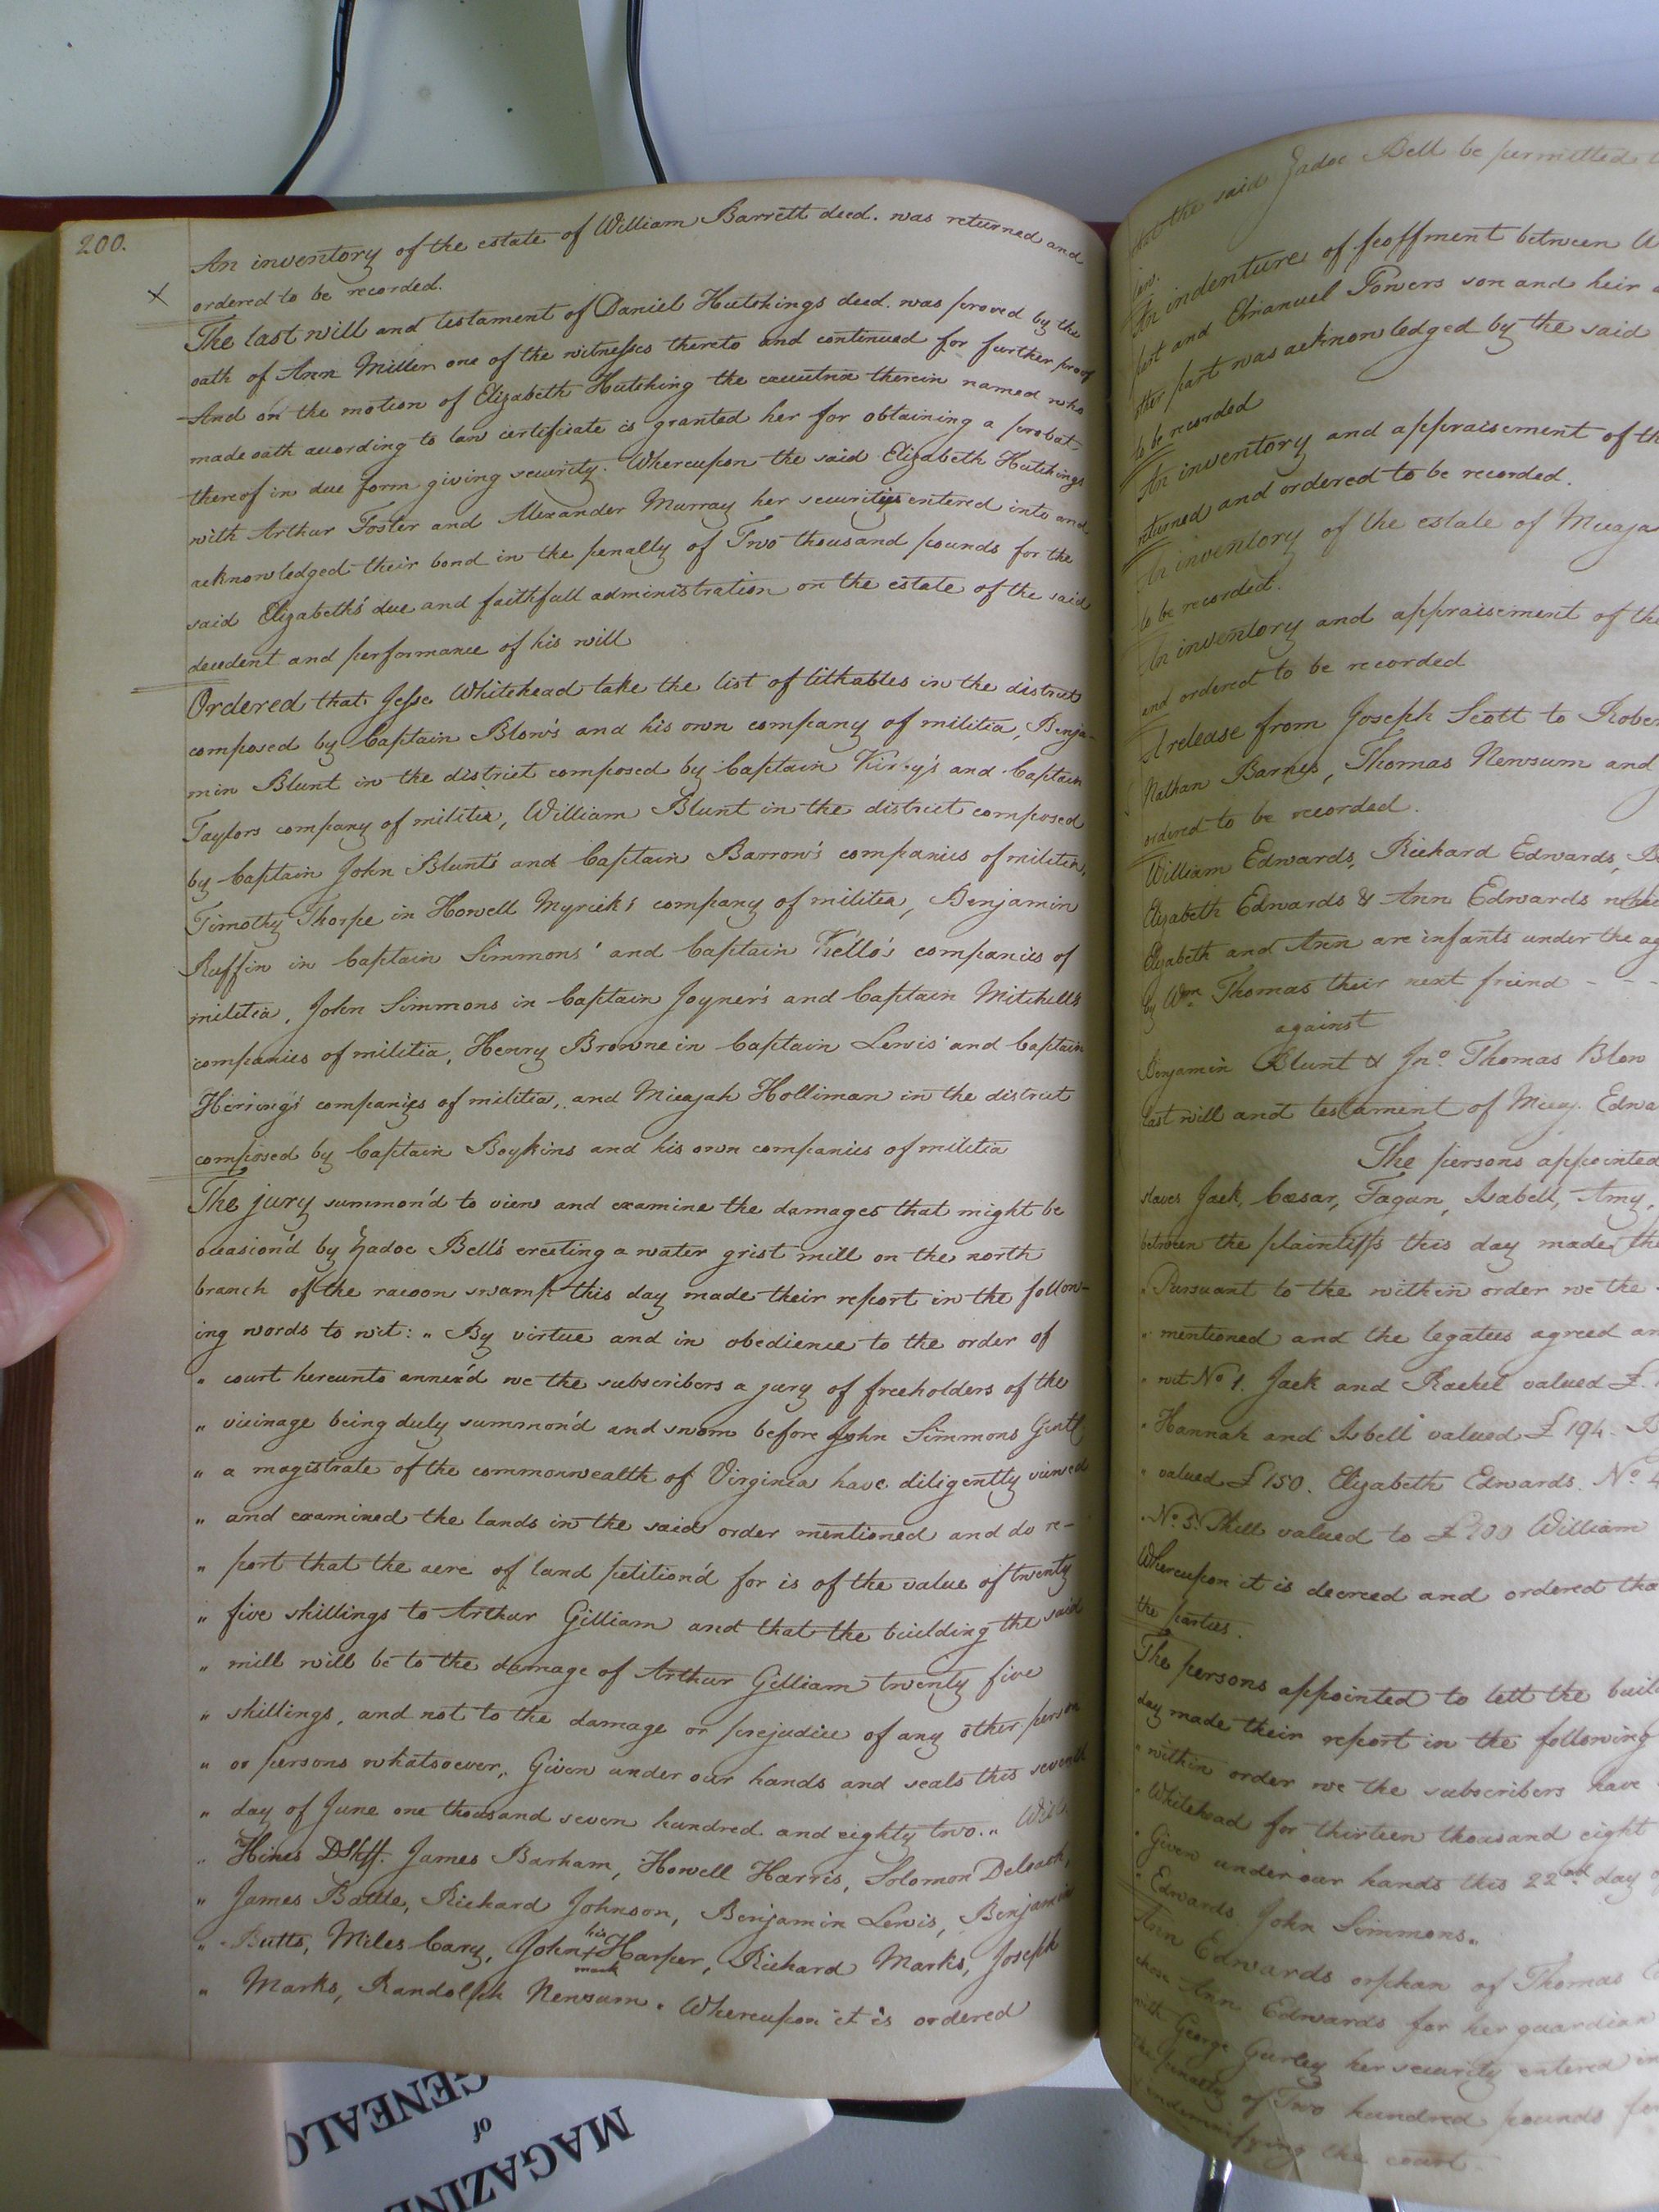 200.
An inventory of the estate of William Barrett decd. was returned and
ordered to be recorded.
The last will and testament of Daniel Hutchings decd. was proved by the
oath of Ann Miller one of the witnesses thereto and continued for further proof
And on the motion of Elizabeth Hutching the executrix therein named who
made oath according to law certificate is granted her for obtaining a probat
thereof in due form giving security. Whereupon the said Elizabeth Hutchings
with Arthur Foster and Alexander Murray her securities entered into and
acknowledged their bond in the penalty of Two thousand pounds for the
said Elizabeth's due and faithfull administration on the estate of the said
decedent and performance of his will
Ordered that Jesse Whitehead take the list of tithables in the district
composed by Captain Blow's and his own company of militia, Benja-
min Blunt in the district composed by Captain Kirby's and Captain
Taylors company of militia, William Blunt in the district composed
by Captain John Blunt's and Captain Barrow's companies of militia,
Timothy Thorpe in Howell Myrick's company of militia, Benjamin
Ruffin in Captain Simmons' and Captain Kello's companies of
militia, John Simmons in Captain Joyner's and Captain Mitchells
companies of militia, Henry Browne in Captain Lewis' and Captain
Herring's companies of militia, and Micajah Holliman in the district
composed by Captain Boykins and his own companies of militia
The jury summon'd to view and examine the damages that might be
occasion'd by Zadoc Bell's erecting a water grist mill on the north
branch of the racoon swamp this day made their report in the follow-
ing words to wit: " By virtue and in obedience to the order of
" court hereunto annex'd we the subscribers a jury of freeholders of the
" vicinage being duly summon'd and sworn before John Simmons Gentl
" a magistrate of the commonwealth of Virginia have diligently viewed
" and examined the lands in the said order mentioned and do re-
" port that the acre of land petition'd for is of the value of twenty
" five shillings to Arthur Gilliam and that the building the said
" mill will be to the damage of Arthur Gilliam twenty five
" shillings, and not to the damage or prejudice of any other person
" or persons whatsoever, Given under our hands and seals this seventh
" day of June one thousand seven hundred and eighty two. "
" Hines DShff. James Barham, Howell Harris, Solomon Deloach,
" James Battle, Richard Johnson, Benjamin Lewis, Benjamin
" Butts, Miles Cary, John his + mark Harper, Richard Marks, Joseph
" Marks, Randolph Newsum. Whereupon it is ordered
that the said Zadoc Bell be permitted
law.
An indenture of feoffment between
part and Emanuel Powers son and heir
other part was acknowledged by the said
to be recorded
An inventory and appraisement of th
returned and ordered to be recorded.
An inventory of the estate of Micaja
to be recorded.
An inventory and appraisement of the
and ordered to be recorded
A release from Joseph Scott to Rober
Nathan Barnes, Thomas Newsum and
ordered to be recorded.
William Edwards, Richard Edwards,
Elizabeth Edwards & Ann Edwards
Elizabeth and Ann are infants under the ag
by Wm Thomas their next friend - - -
against
Benjamin Blunt & Jno. Thomas Blow
last will and testament of Micaj. Edwa
The persons appointed
slaves Jack, Cæsar, Fagan, Isabell, Amy,
between the plaintiffs this day made the
" Pursuant to the within order we the
" mentioned and the legatees agreed an
" wit No 1. Jack and Rachel valued £.
" Hannah and Isbell valued £ 194.
" valued £ 150. Elizabeth Edwards. No. 4
" No. 5. Phill valued to £ 200 William
Whereupon it is decreed and ordered tha
the parties.
The persons appointed to lett the buil
day made their report in the following
" within order we the subscribers have
" Whitehead for thirteen thousand eight
" Given under our hands this 22nd day
" Edwards. John Simmons.
Ann Edwards orphan of Thomas
chose Ann Edwards for her guardian
with George Gurley her security entered in
the penalty of Two hundred pounds for
indemnifying the court.
MAGAZINE
of
GENEALO